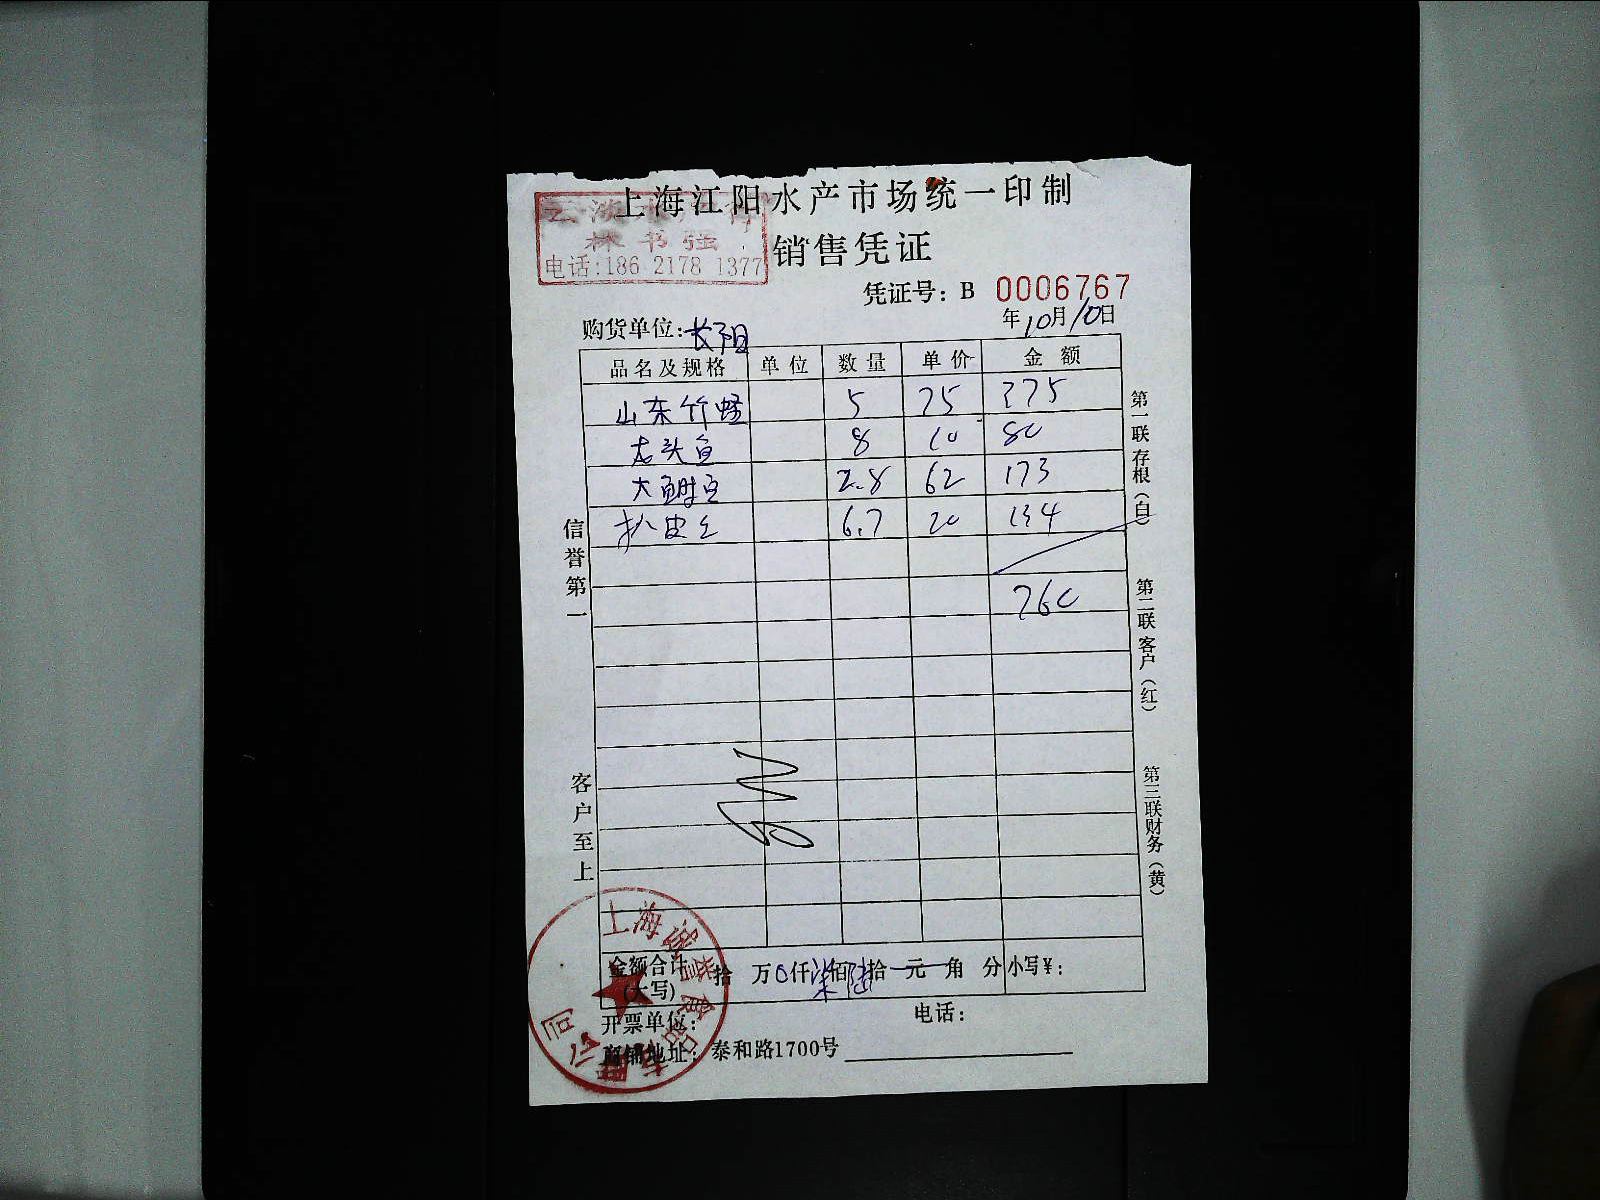 上海江阳水产市场统一印制
林书强
电话:186 2178 1377
销售凭证
凭证号: B 0006767
年10月10日
购货单位:长阳
品名及规格 单位 数量 单价 金额
山东竹蛏 5 75 375
龙头鱼 8 10 80
大鲥鱼 2.8 62 173
扒皮鱼 6.7 20 134
760
信誉第一
客户至上
第一联存根(白)
第二联客户(红)
第三联财务(黄)
金额合计(大写) 拾 万0仟柒佰陆拾 元 角 分 小写¥:
开票单位: 电话:
商铺地址: 泰和路1700号
上海诚誉食品有限公司